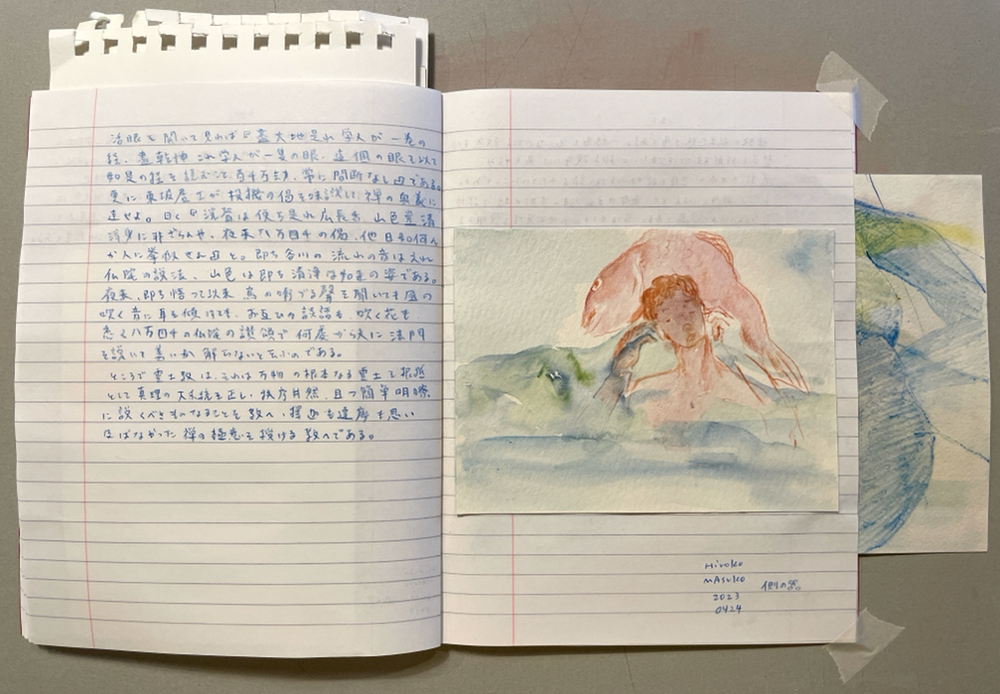 活眼を開いて見れば『盡大地是れ学人が一巻の
経、盡乾坤これ学人が一隻の眼、這個の眼を以て
如是の経を読むこと百千万劫、常に間断なし』である。
更に東坡居士が投機の偈を味読して禅の奥義に
達せよ。曰く『渓聲は便ち是れ広長舌、山色豈清
浄身に非ざらんや、夜来八万四千の偈、他日如何ん
が人に挙似せん』と。即ち谷川の流れの音はこれ
仏陀の説法、山色は即ち清浄な如来の姿である。
夜来、即ち悟って以来、鳥の囀づる聲を聞いても風の
吹く音に耳を傾けても、お互ひの談話も、咲く花も
悉く八万四千の仏陀の讃頌で何度から人に法門
を説いて善いか解らないと云ふのである。
ところで霊士教は、それは万物の根本なる霊士を根拠
として真理の大系統を正し、秩序井然、且つ簡単明瞭
に説くべきものなることを教へ、釋迦も達磨も思い
及ばなかった禅の極意を授ける教へである。
Hiroko
Masuko
2023
0424